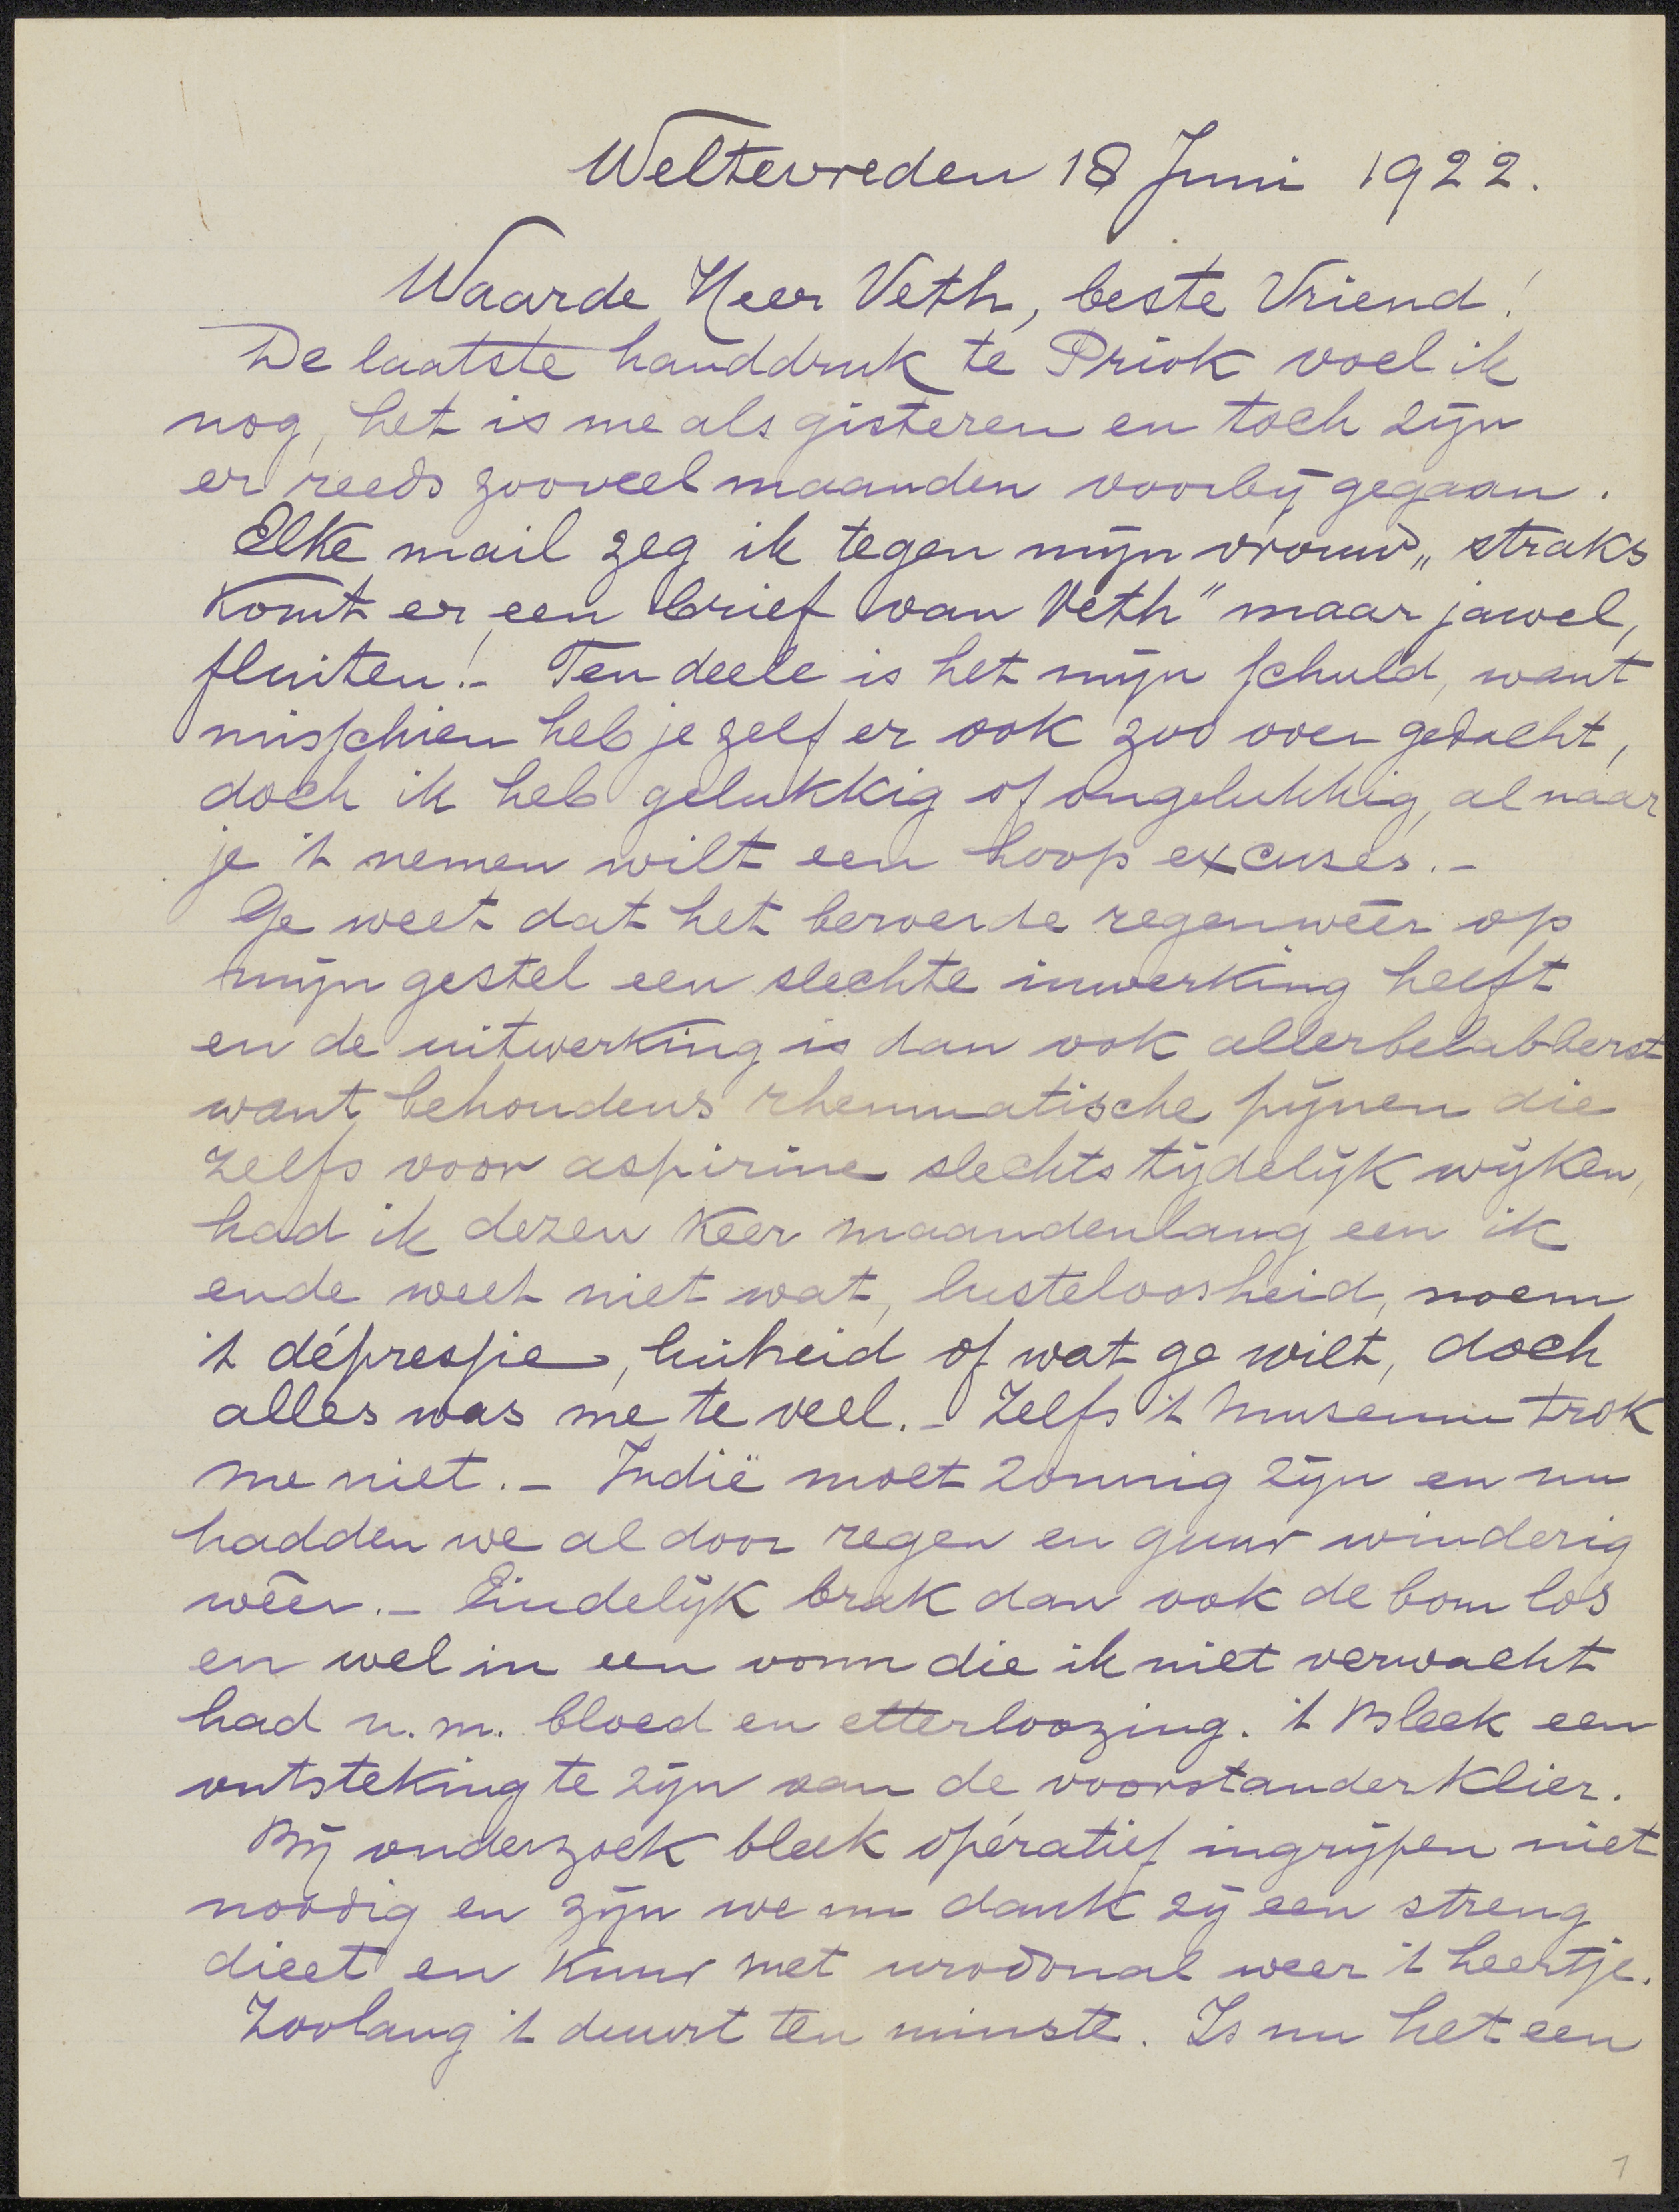 Weltevreden 18 Juni 1922.
Waarde Heer Veth, beste Vriend!
De laatste handdruk te Priok voel ik
nog, het is me als gisteren en toch zijn
er reeds zooveel maanden voorbij gegaan.
Elke mail zeg ik tegen mijn vrouw „straks
komt er een brief van Veth" maar jawel,
fluiten!- Ten deele is het mijn schuld, want
misschien heb je zelf er ook zoo over gedacht,
doch ik heb gelukkig of ongelukkig, al naar
je 't nemen wilt een hoop excuses.-
Ge weet dat het beroerde regenwéér op
mijn gestel een slechte inwerking heeft
en de uitwerking is dan ook allerbelabberst
want behoudens rheumatische pijnen die
zelfs voor aspirine slechts tijdelijk wijken,
had ik dezen keer maandenlang een ik
en de weet niet wat, lusteloosheid, noem
't dépressie, luiheid of wat ge wilt, doch
alles was me te veel.- Zelfs 't museum trok
me niet.- Indië moet zonnig zijn en nu
hadden we al door regen en guur winderig
wéér.- Eindelijk brak dan ook de bom los
en wel in een vorm die ik niet verwacht
had n.m. bloed en etterloozing. 't Bleek een
ontsteking te zijn van de voorstanderklier.
Bij onderzoek bleek opératief ingrijpen niet
noodig en zijn we nu dank zij een streng
dieet en kuur met urodonal weer 't heertje.
Zoolang 't duurt ten minste. Is nu het een
1